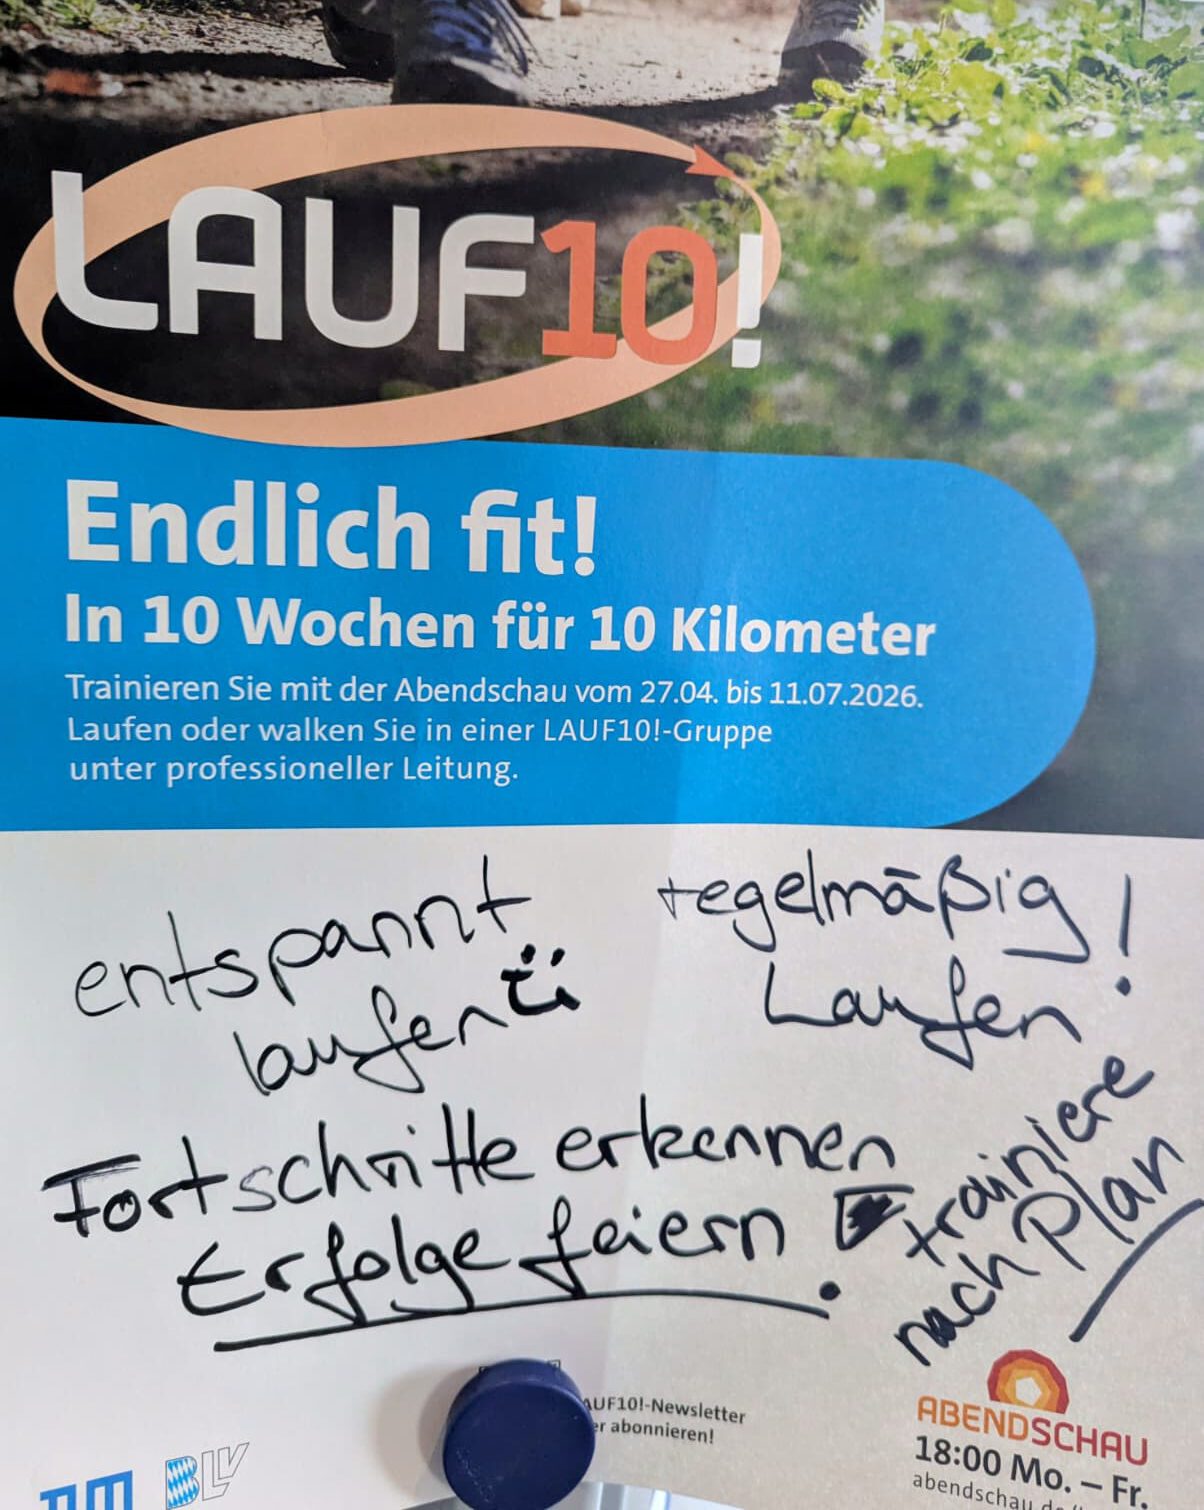 LAUF10!
Endlich fit!
In 10 Wochen für 10 Kilometer
Trainieren Sie mit der Abendschau vom 27.04. bis 11.07.2026.
Laufen oder walken Sie in einer LAUF10!-Gruppe
unter professioneller Leitung.
entspannt
laufen
regelmäßig!
Laufen
Fortschritte erkennen
Erfolge feiern!
trainiere
nach Plan
AUF10!-Newsletter
er abonnieren!
BLV
ABENDSCHAU
18:00 Mo. – Fr.